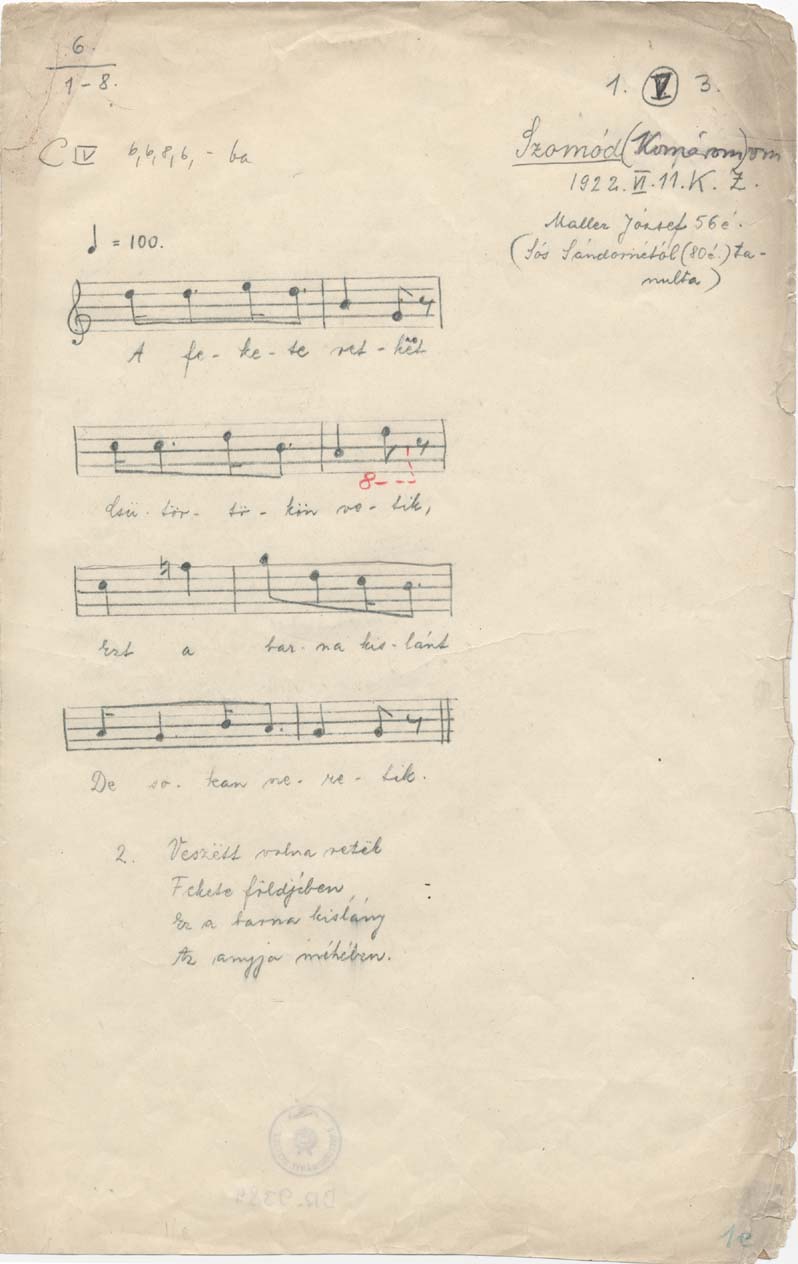 6.
1-8.
1. V. 3.
C IV 6, 6, 8, 6, - ba
Szomód (Komárom)om
1922. VI. 11. K. Z.
Maller József 56 é.
(Sós Sándornétól (80 é.) ta-
nulta)
= 100.
A fe- ke- te ret- két
Csü- tör- tö- kön ve- tik,
8- - -
Ezt a bar- na kis- lánt
De so- kan ne- ve- tik.
2. Veszëtt volna retëk
Fekete földjében,
Ez a barna kislány
Az anyja méhében.